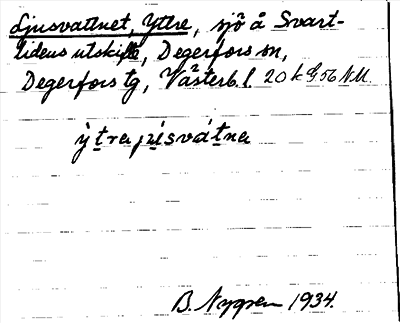 Ljusvattnet, Yttre, sjö å Svart-
lidens utskifte, Degerfors sn,
Degerfors tg, Västerb. l. 20 k G 56 N.M.
ỳtrajʉ́svàtna
B. Nygren 1934.